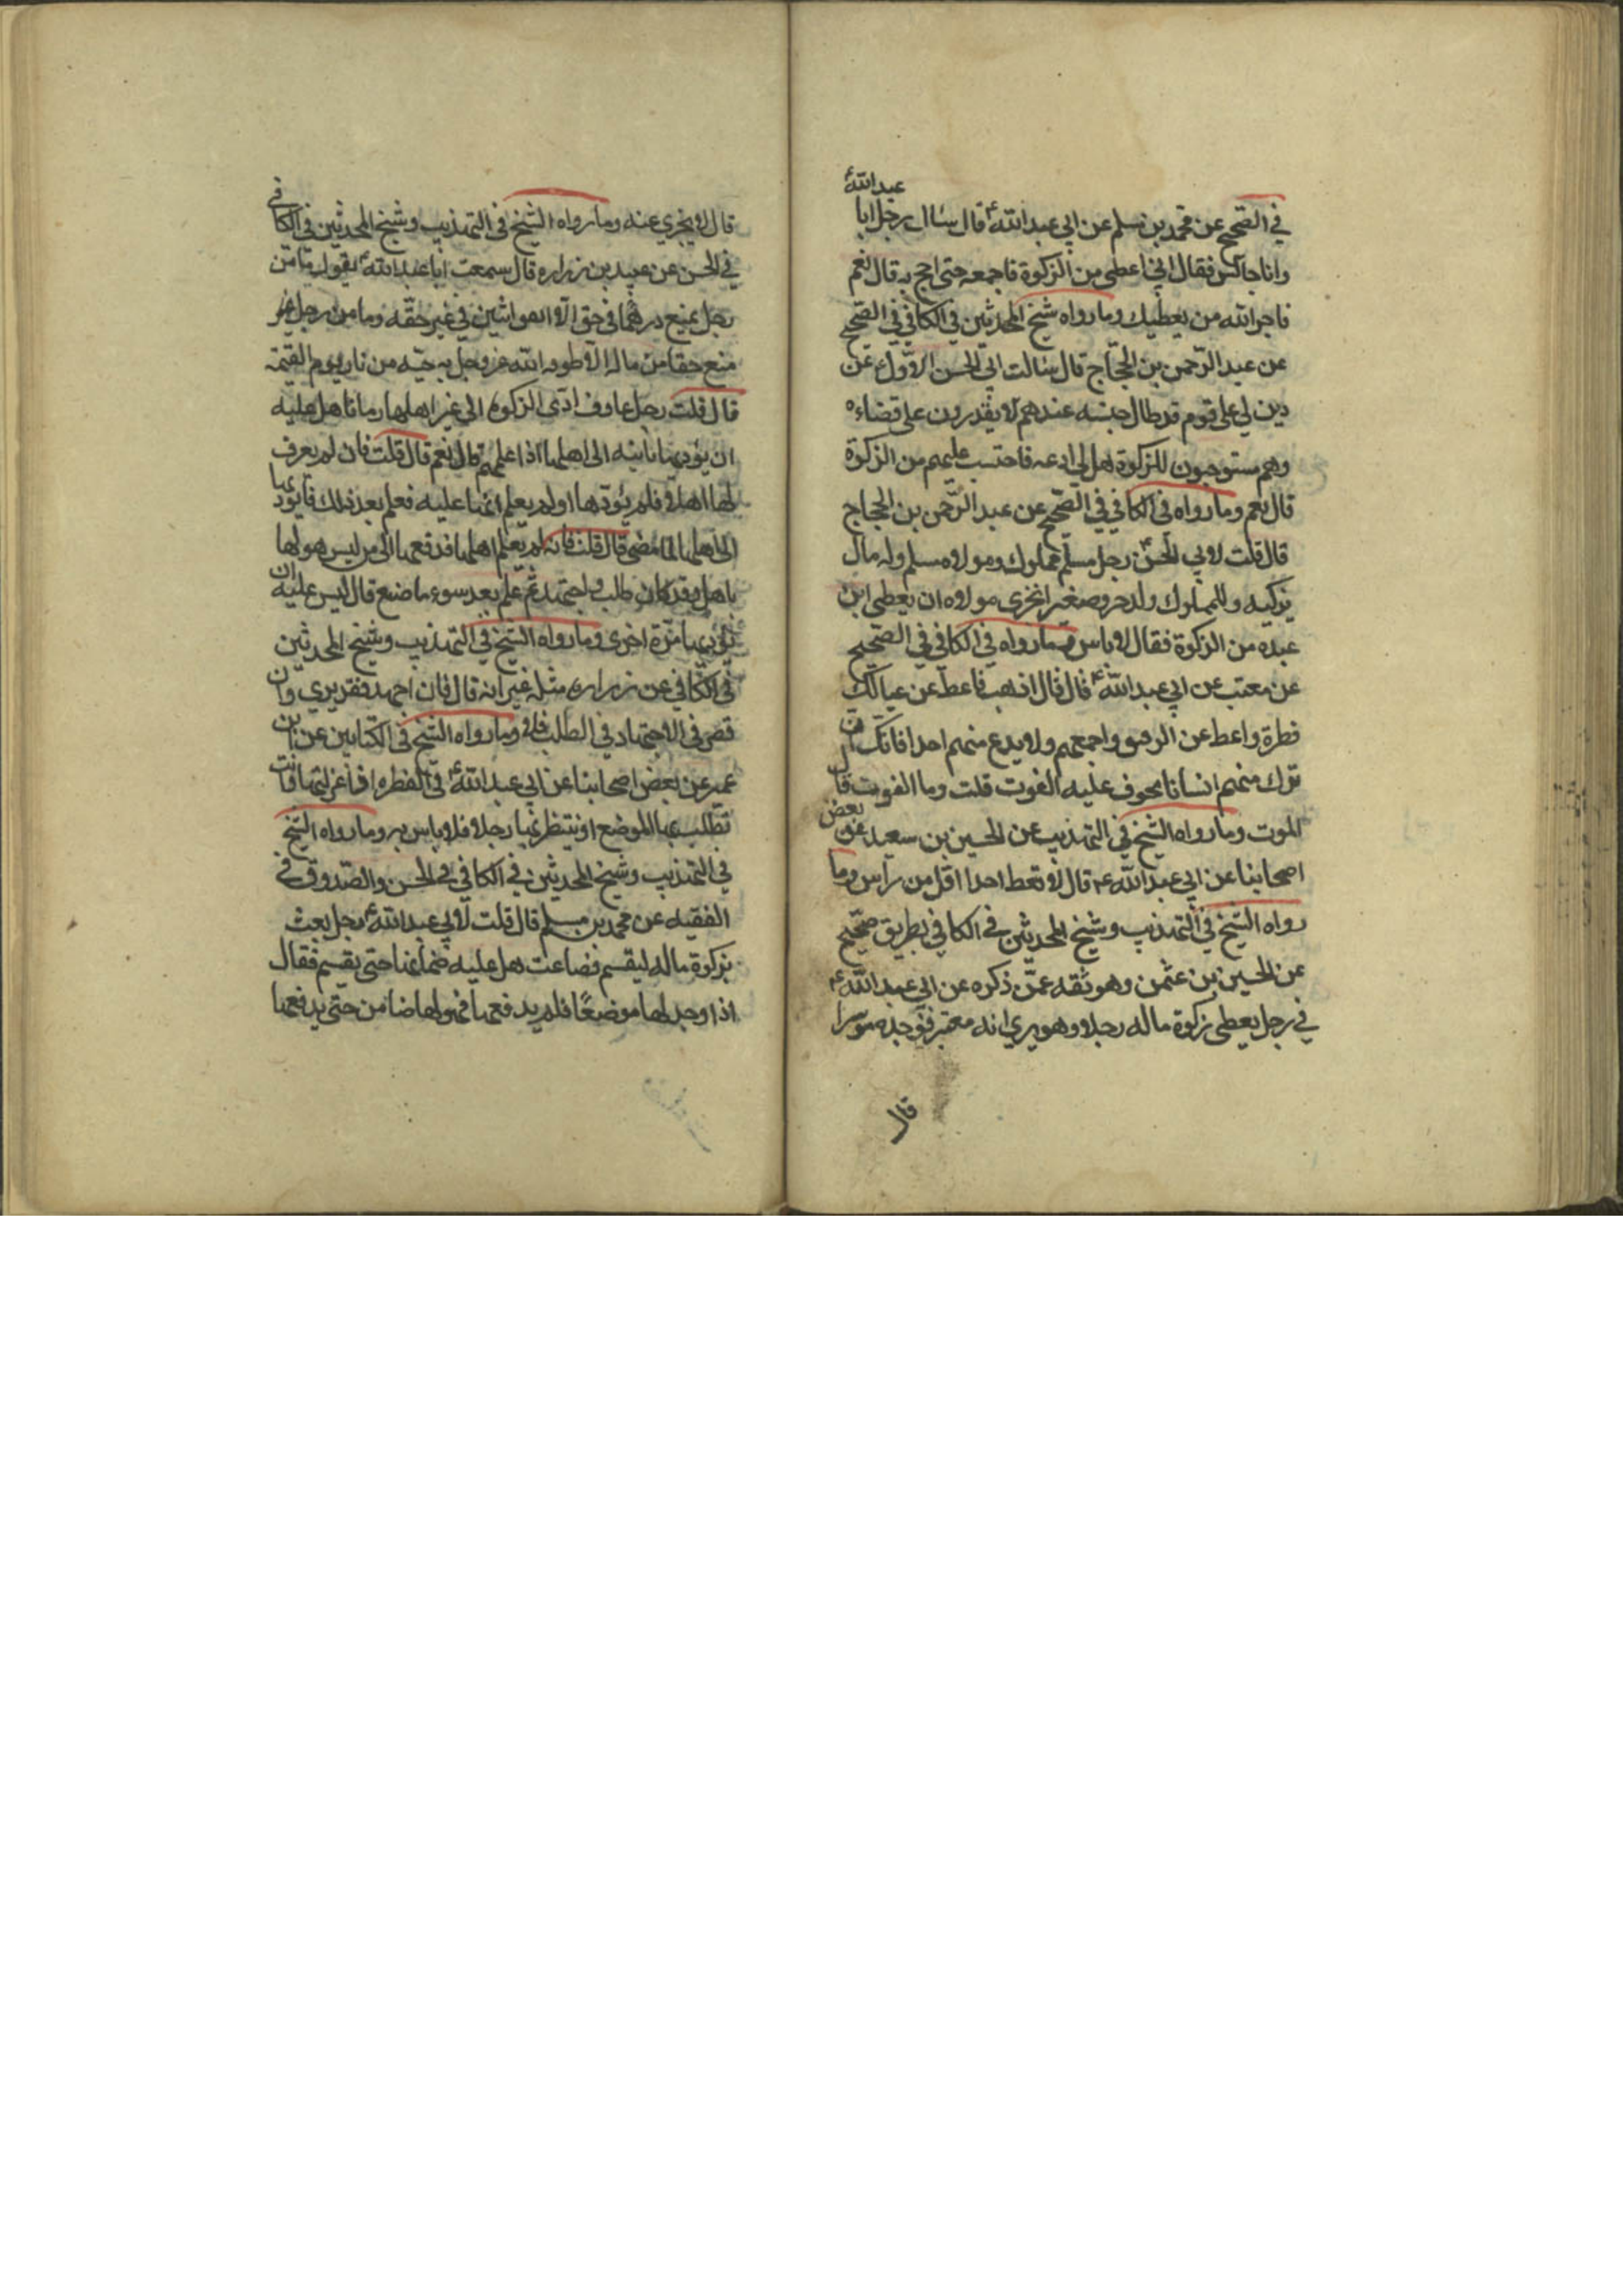 في الصحيح عن محمد بن مسلم عن ابي عبد الله ع قال سال رجل ابا عبد الله ع
وانا جالس فقال اني اعطي من الزكوة فاجمعه حتى احج به قال نعم
ياجر الله من يعطيك وما رواه شيخ المحدثين في الكافي في الصحيح
عن عبد الرحمن بن الحجاج قال سالت ابي الحسن الاول عن
دين لي على قوم قد طال حبسه عندهم لا يقدرون على قضاءه
وهم مستوجبون للزكوة هل لي ادعه فاحتسب عليهم من الزكوة
قال نعم وما رواه في الكافي في الصحيح عن عبد الرحمن بن الحجاج
قال قلت لابي الحسن ع رجل مسلم مملوك ومولاه مسلم وله مال
يزكيه وللمملوك ولد حر وصغير ايجزي مولاه ان يعطي ابن
عبده من الزكوة فقال لا باس وما رواه في الكافي في الصحيح
عن معتب عن ابي عبد الله ع قال قال اذهب فاعط عن عيالك
فطرة واعط عن الرقيق واجمعهم ولا يدع منهم احدا فانك ان
ترك منهم انسانا يخوف عليه الفوت قلت وما الفوت قال
الموت وما رواه الشيخ في التهذيب عن الحسين بن سعيد عن بعض
اصحابنا عن ابي عبد الله ع قال لا تعط احدا اقل من راس وما
رواه الشيخ في التهذيب وشيخ المحدثين في الكافي بطريق صحيح
عن الحسين بن عثمن وهو ثقه عمن ذكره عن ابي عبد الله ع
في رجل يعطي زكوة ماله رجلا وهو يري انه معسر فوجده موسرا
قال
قال لا يجزي عنه وما رواه الشيخ في التهذيب وشيخ المحدثين في الكافي
في الحسن عن عبيد بن زراره قال سمعت ابا عبد الله ع يقول ما من
رجل يمنع درهما في حق الا انفق اثنين في غير حقه وما من رجل
منع حقا من ماله الا طوقه الله عز وجل به حية من نار يوم القيمة
قال قلت رجل عارف ادى الزكوة الي غير اهلها زمانا هل عليه
ان يؤديها ثانيه الى اهلها اذا علمهم قال نعم قال قلت فان لم يعرف
لها اهلا فلم يؤدها او لم يعلم انها عليه فعلم بعد ذلك قال يؤديها
الى اهلها لما مضى قال قلت فانه لم يعلم اهلها فدفعها الى من ليس هو لها
باهل وقد كان طلب واجتهد ثم علم بعد سوء ما صنع قال ليس عليه ان
يؤديها مرة اخرى وما رواه الشيخ في التهذيب وشيخ المحدثين
في الكافي عن زراره مثله غير انه قال فان اجتهد فقد بري وان
قصر في الاجتهاد في الطلب فلا وما رواه الشيخ في الكتابين عن ابن
عمير عن بعض اصحابنا عن ابي عبد الله ع في الفطره اذا عزلتها وانت
تطلب بها الموضع او تنتظر بها رجلا فلا باس به وما رواه الشيخ
في التهذيب وشيخ المحدثين في الكافي في الحسن والصدوق في
الفقيه عن محمد بن مسلم قال قلت لابي عبد الله ع رجل بعث
بزكوة ماله ليقسم فضاعت هل عليه ضمانها حتى يقسم فقال
اذا وجد لها موضعا فلم يدفعها فهو لها ضامن حتى يدفعها